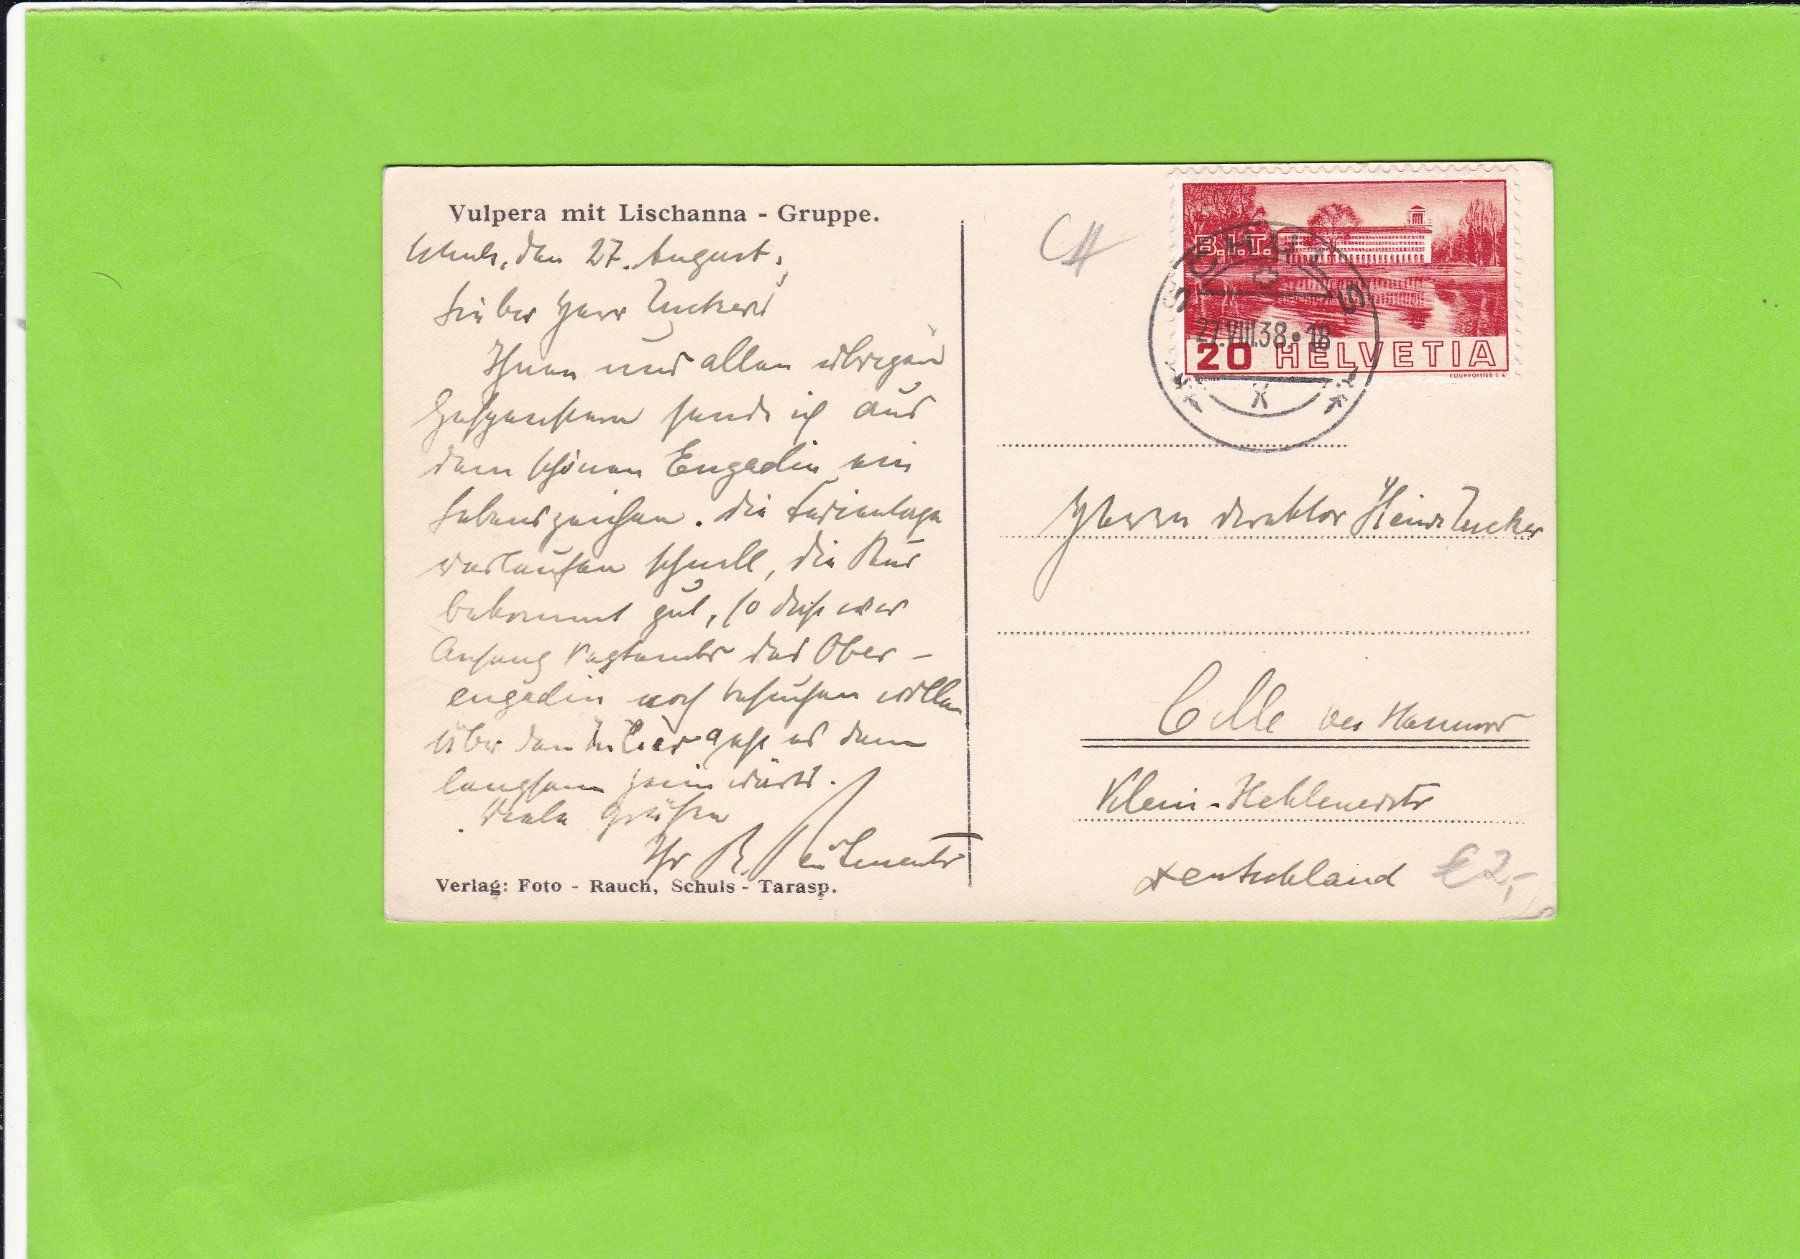 Vulpera mit Lischanna - Gruppe.
Schuls, den 27. August.
Lieber Herr Zucker!
Ihnen und allen übrigen
sende ich aus
dem schönen Engadin ein
Lebenszeichen. Die Ferientage
verlaufen schnell, die Kur
bekommt gut, so daß wir
Anfang September das Ober-
engadin noch besuchen wollen
Über den Julier geht es dann
langsam heimwärts.
Viele Grüße
Ihr R.
Verlag: Foto - Rauch, Schuls - Tarasp.
CH
B.I.T.
SCHULS
27.VIII.38.18
X
20 HELVETIA
COURVOISIER S.A.
Herrn Direktor Heinz Zucker
Celle bei Hannover
Klein-Hehlenerstr
Deutschland
€2,-